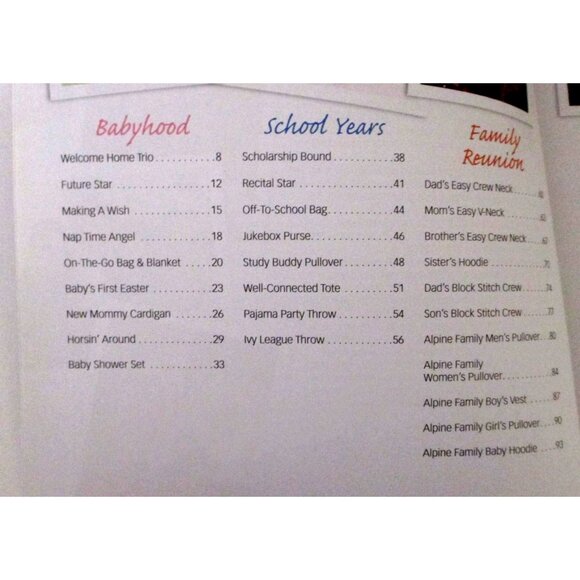 Babyhood
Welcome Home Trio...........8
Future Star .................12
Making A Wish ..............15
Nap Time Angel .............18
On-The-Go Bag & Blanket .....20
Baby's First Easter ...........23
New Mommy Cardigan .......26
Horsin' Around ..............29
Baby Shower Set .............33
School Years
Scholarship Bound ...........38
Recital Star .................41
Off-To-School Bag............44
Jukebox Purse...............46
Study Buddy Pullover .........48
Well-Connected Tote .........51
Pajama Party Throw..........54
Ivy League Throw ............56
Family
Reunion
Dad's Easy Crew Neck
Mom's Easy V-Neck
Brother's Easy Crew Neck
Sister's Hoodie
Dad's Block Stitch Crew .....74
Son's Block Stitch Crew .....77
Alpine Family Men's Pullover..80
Alpine Family
Women's Pullover...........84
Alpine Family Boy's Vest .....87
Alpine Family Girl's Pullover...90
Alpine Family Baby Hoodie ....93